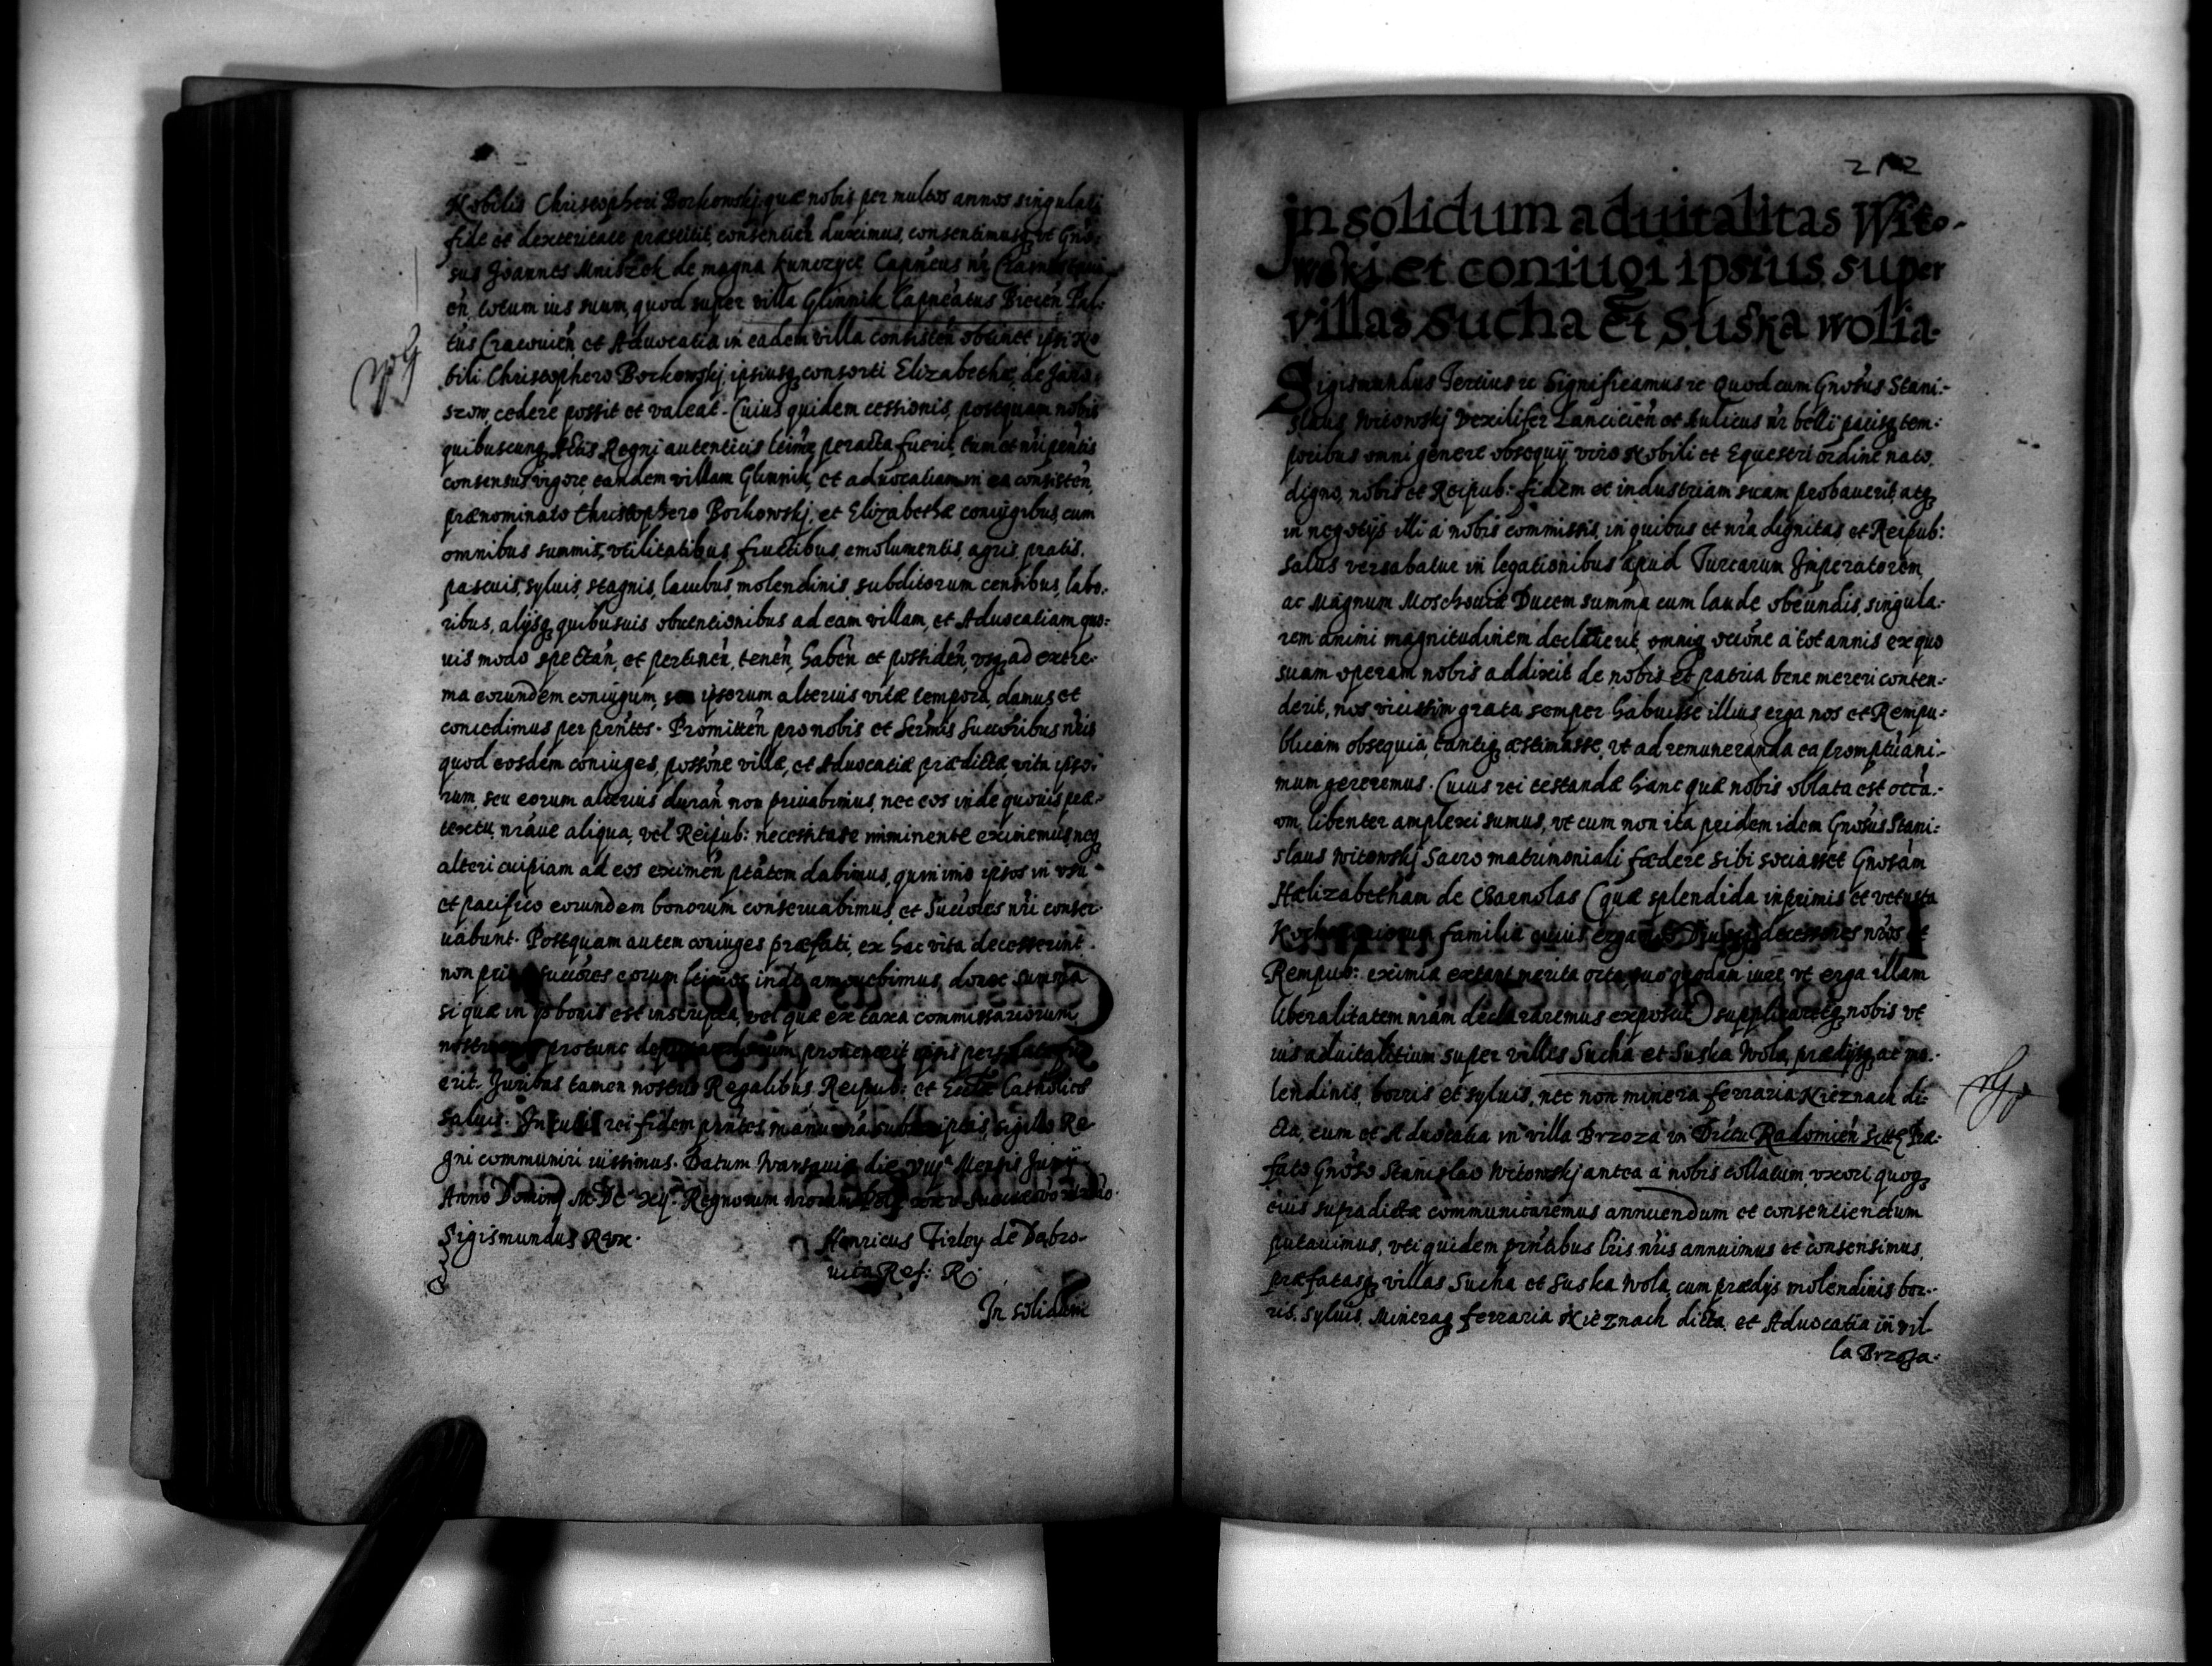 Nobilis Christopheri Borkowskj, quæ nobis per multos annos singulari
fide et dexteritate præstitit, consentien duximus, consentimusq vt Gno-
sus Joannes Mniszek de magna Kunczyce Capneus nr
en, totum ius suum, quod super villa Glinnik Capneatus Biecen Pal:
tus Cracouien, et Aduocatia in eadem villa consisten obtinet ipsi No
bili Christophero Borkowskj, ipsiusq consorti Elizabethæ, de
szow, cedere possit et valeat. Cuius quidem cessionis, postquam nobis
quibuscunq Actis Regni autenticis leime peracta fuerit, tum et nri pentis
consensus vigore, eandem villam Glinnik, et aduocatiam in ea consisten,
prænominato Christophero Borkowskj, et Elizabethæ coniugibus, cum
omnibus summis, vtilitatibus, fructibus, emolumentis, agris, pratis,
pascuis, syluis, stagnis, lacubus, molendinis, subditorum censibus, labo:
ribus, alijsq quibusuis obuentionibus ad eam villam, et Aduocatiam quo:
uis modo spectan, et pertinen, tenen, haben et possiden, vsq ad extre-
ma eorundem coniugum, seu ipsorum alterius vitæ tempora, damus et
concedimus per pntes. Promitten pro nobis et Sermis Succoribus nris
quod eosdem coniuges, possone villæ, et Aduocatiæ prædictæ, vita ipso:
rum, seu eorum alterius duran non priuabimus, nec eos inde quouis præ:
textu, nraue aliqua, vel Reipub: necessitate imminente eximemus, neq
alteri cuipiam ad eos eximen ptatem dabimus, quin imo ipsos in vsu
et pacifico eorundem bonorum conseruabimus, et Succores nri conser-
uabunt. Postquam autem coniuges præfati, ex hac vita decesserint
non prius succores eorum leimos inde amouebimus, donec summa
si quæ in ijs bonis est inscripta, vel quæ ex taxa commissariorum
nostrorum protunc prouenerit ipsis
erit. Juribus tamen nostris Regalibus Reipub: et Ecclæ Catholicæ
saluis. In cuius rei fidem pntes manu nra subscriptas, sigillo Re
gni communiri iussimus. Datum Warsauiæ die Mensis
Anno Domini M DC XIJ. Regnorum nrorum
Sigismundus Rex.
Henricus Firley de Dabro-
uica Ref: R.
In solidum
212
jn solidum aduitalitas Wito-
wskj et coniugi ipsius super
villas sucha Et Suska wolia.
Sigismundus Tertius rc Significamus rc Quod cum Gnosus Stani:
slaus Witowskj Vexilifer Lancicien et Aulicus nr belli pacisq tem:
poribus omni genere obsequij viro Nobili et Equestri ordine nato,
digno, nobis et Reipub: fidem et industriam suam probauerit, atq
in negotijs illi a nobis commissis, in quibus et nra dignitas et Reipub:
salus versabatur in legationibus apud Turcarum Imperatorem,
ac Magnum Moschouiæ Ducem summa cum laude obeundis, singula:
rem animi magnitudinem declarauerit, omniq ocione a tot annis ex quo
suam operam nobis addixit de nobis et patria bene mereri conten:
derit, nos vicissim grata semper habuisse illius erga nos et Rempu:
blicam obsequia, tantiq æstimasse, vt ad remuneranda ea promptu ani-
mum gereremus. Cuius rei testandæ hanc quæ nobis oblata est occa:
om, libenter amplexi sumus, vt cum non ita pridem idem Gnosus Stani:
slaus Witowskj Sacro matrimoniali fædere sibi sociasset Gnosam
Hælizabetham de Charnolas (quæ splendida inprimis et vetusta
familia cuius erga decessores nros et
Rempub: eximia extant merita orta, suo quodam iure vt erga illam
liberalitatem nram declararemus exposcit) supplicaretq nobis vt
ius aduitalitium super villes Sucha et Suska Wola, prædijsq ac mo:
lendinis, borris et syluis, nec non minera ferraria Nieznach di:
cta, cum et Aduocatia in villa Brzoza in Drictu Radomien sitis Præ:
fato Gnoso Stanislao Witowskj antea a nobis collatum vxori quoq
eius supradictæ communicaremus annuendum et consentiendum
putauimus, vti quidem pntabus lris nris annuimus et consensimus,
præfatasq villas Sucha et Suska Wola, cum prædijs molendinis bor:
ris, syluis, Mineraq ferraria Nieznach dicta, et Aduocatia in vil
la Brzoza.